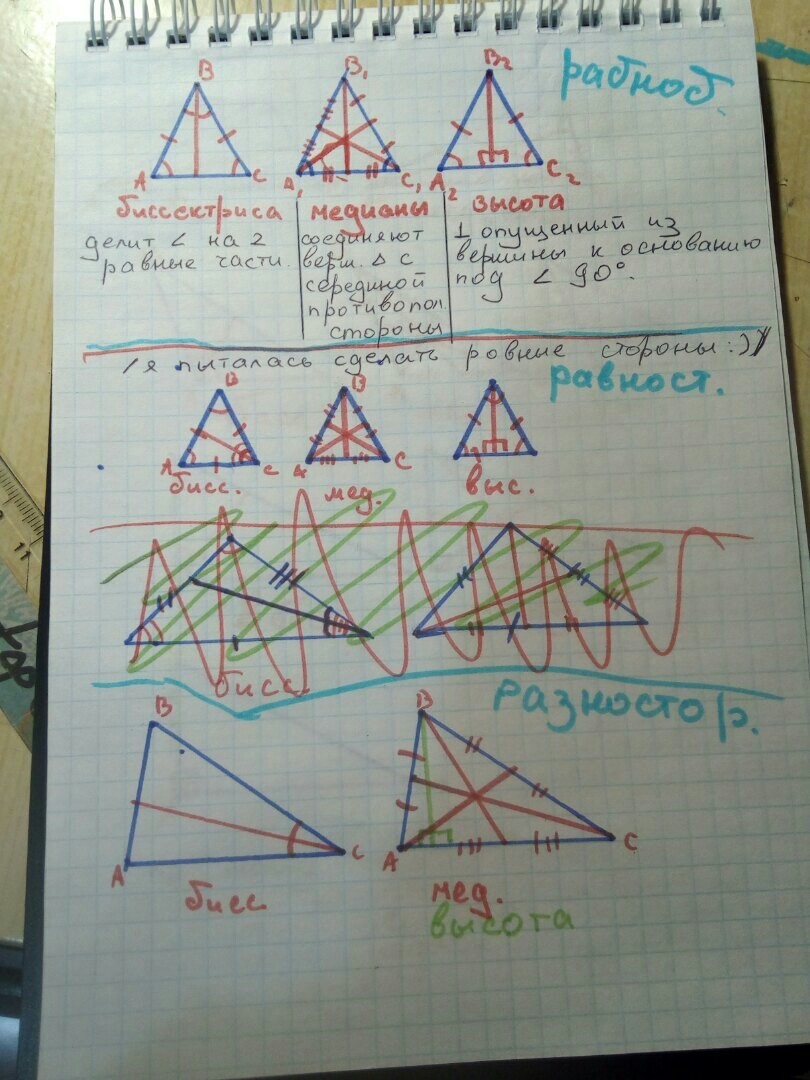 равноб.
B
B₁
B₂
A
C
A₁
C₁
A₂
C₂
биссектриса
делит ∠ на 2
равные части.
медианы
соединяют
верш. △ с
серединой
противопол.
стороны
высота
⊥ опущенный из
вершины к основанию
под ∠ 90°.
/я пыталась сделать ровные стороны:)/
равност.
B
B
A
C
A
C
бисс.
мед.
выс.
бисс
разностор.
B
B
A
C
A
C
бисс
мед.
высота